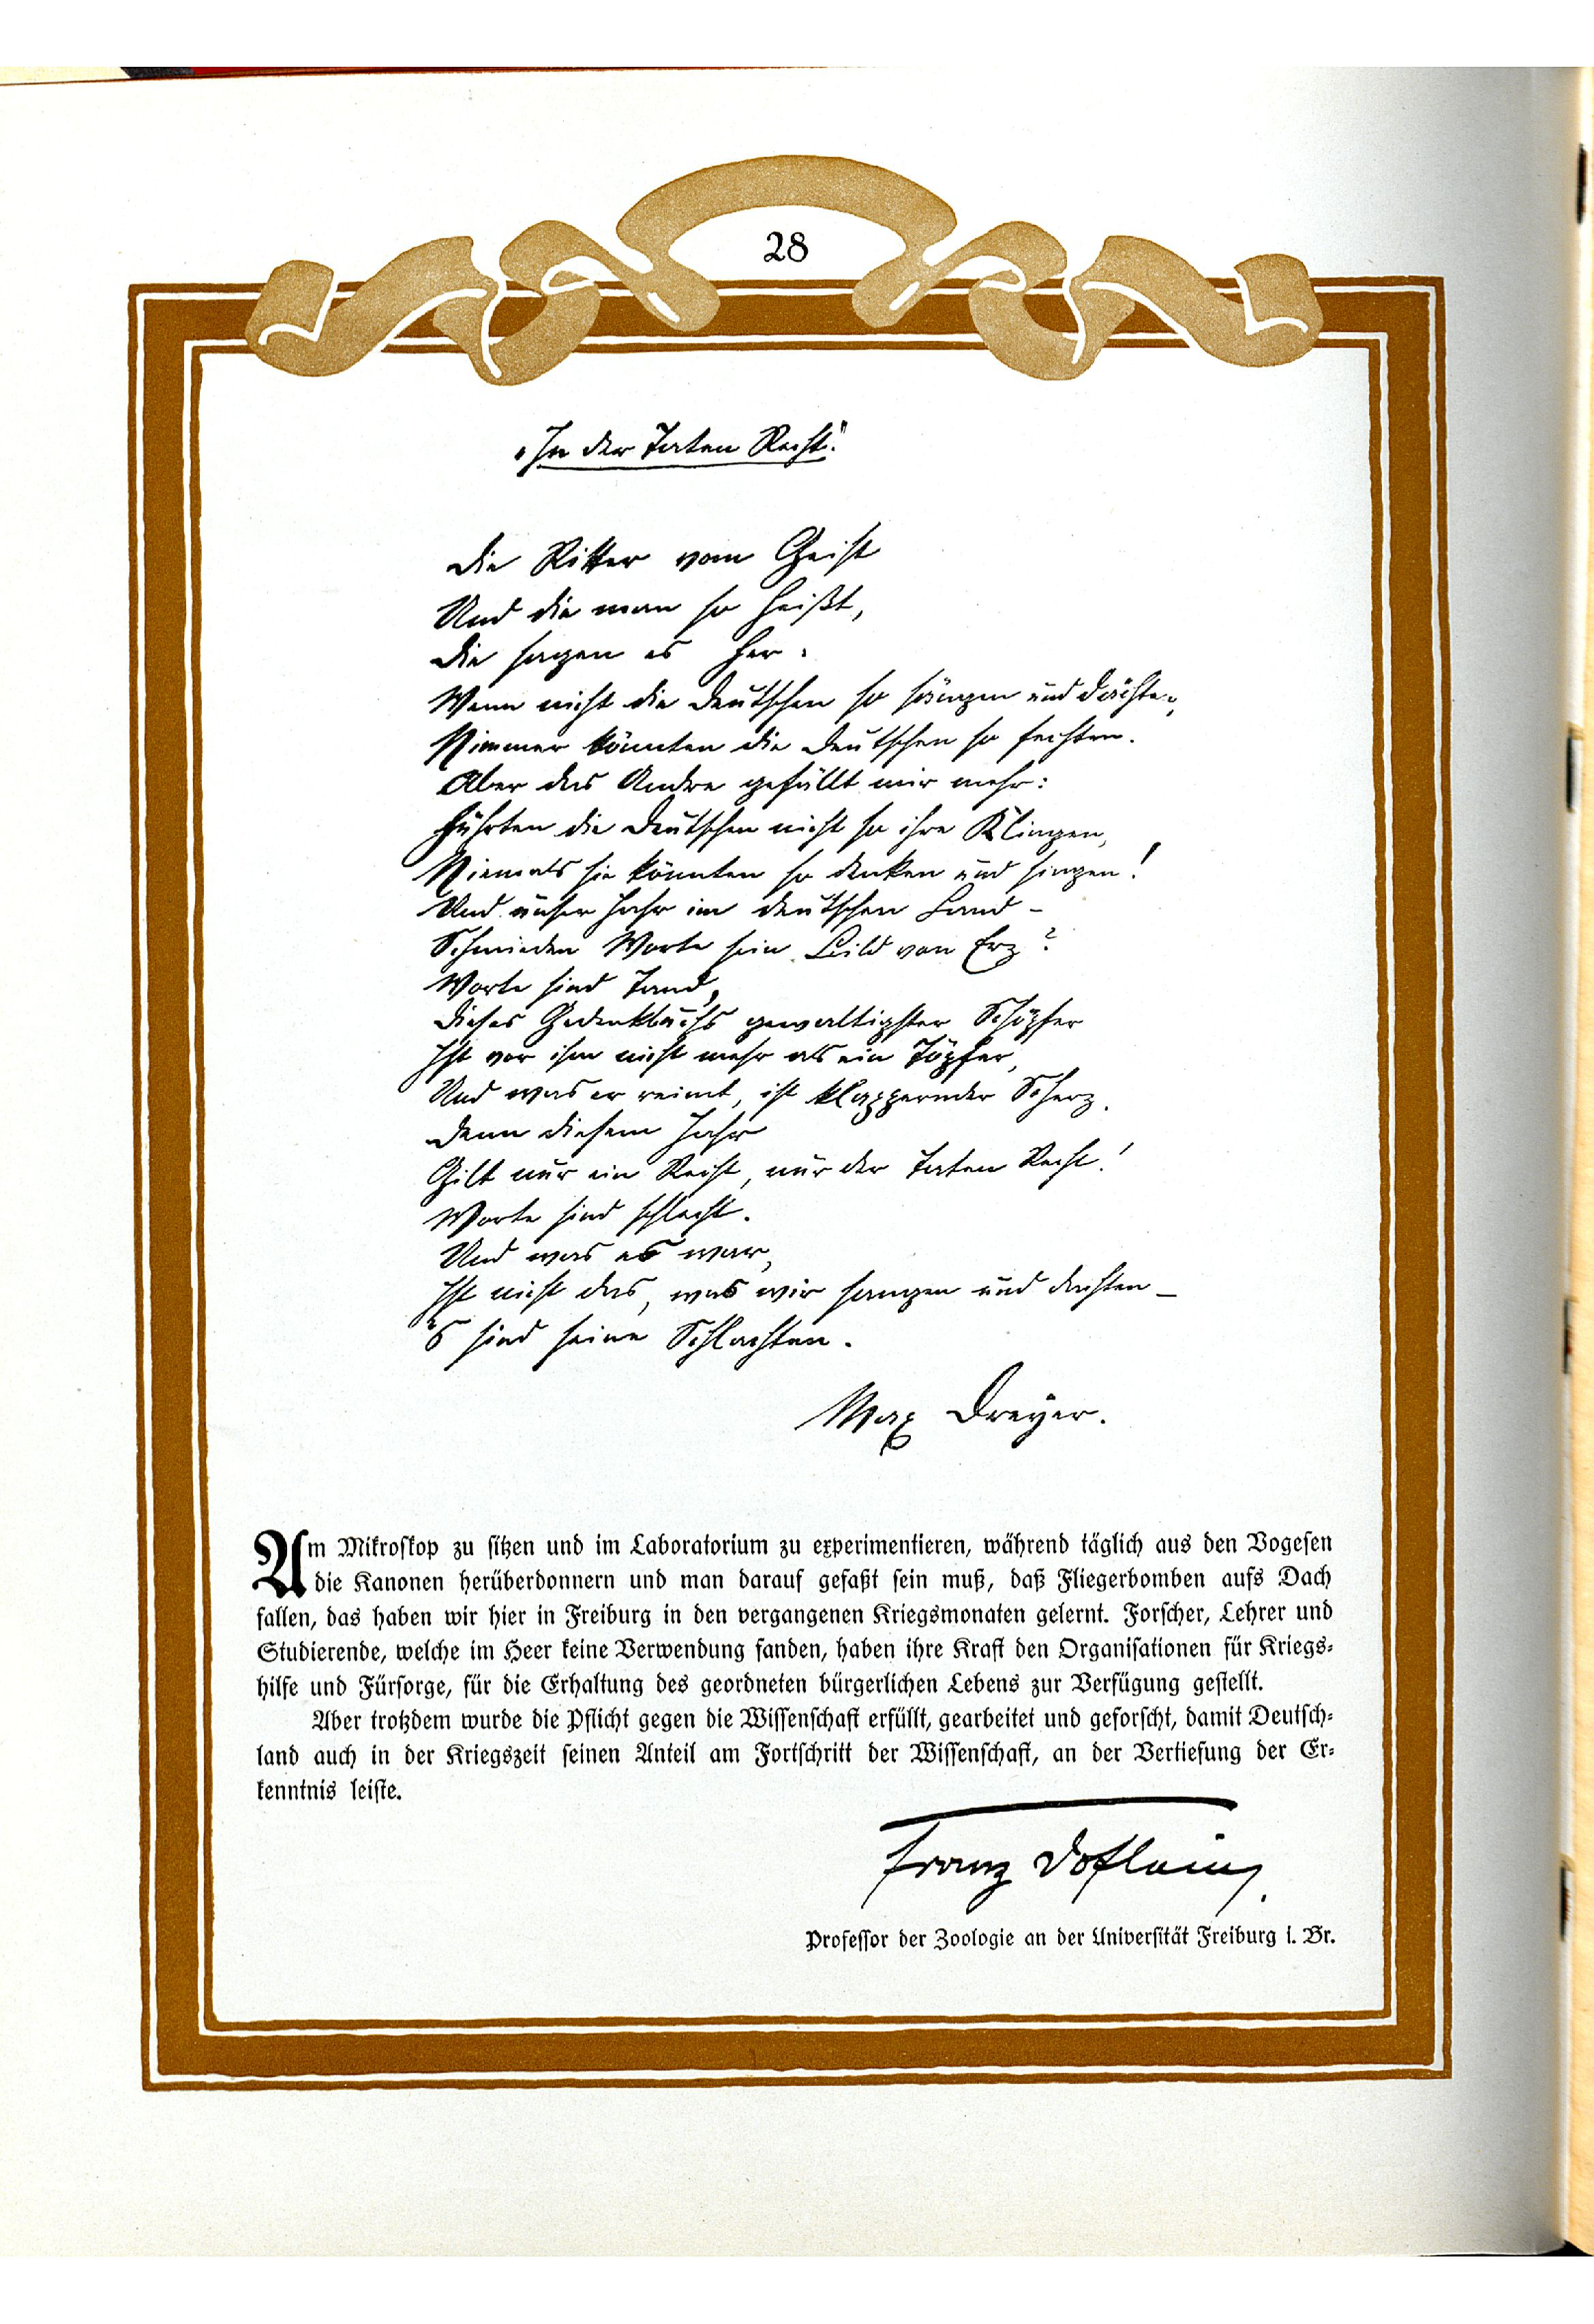 28
„In der Taten Recht."
Die Ritter vom Geist
Und die man so heißt,
Die sagen es her:
Wenn nicht die Deutschen so sängen und dächten,
Nimmer könnten die Deutschen so fechten.
Aber das Andre gefällt mir mehr:
Führten die Deutschen nicht so ihre Klingen,
Niemals sie könnten so denken und singen!
Und unser Jahr im deutschen Land –
Schmieden Worte sein Bild von Erz?
Worte sind Tand,
Dieses Gedenkbuchs gewaltigster Schöpfer
Ist vor ihm nicht mehr als ein Töpfer,
Und was er reimt, ist klappernder Scherz.
Denn diesem Jahr
Gilt nur ein Recht, nur der Taten Recht!
Worte sind schlecht.
Und was es war,
Ist nicht das, was wir sangen und dachten –
's sind seine Schlachten.
Max Dreyer.
Am Mikroskop zu sitzen und im Laboratorium zu experimentieren, während täglich aus den Vogesen
die Kanonen herüberdonnern und man darauf gefaßt sein muß, daß Fliegerbomben aufs Dach
fallen, das haben wir hier in Freiburg in den vergangenen Kriegsmonaten gelernt. Forscher, Lehrer und
Studierende, welche im Heer keine Verwendung fanden, haben ihre Kraft den Organisationen für Kriegs-
hilfe und Fürsorge, für die Erhaltung des geordneten bürgerlichen Lebens zur Verfügung gestellt.
Aber trotzdem wurde die Pflicht gegen die Wissenschaft erfüllt, gearbeitet und geforscht, damit Deutsch-
land auch in der Kriegszeit seinen Anteil am Fortschritt der Wissenschaft, an der Vertiefung der Er-
kenntnis leiste.
Franz Doflein,
Professor der Zoologie an der Universität Freiburg i. Br.